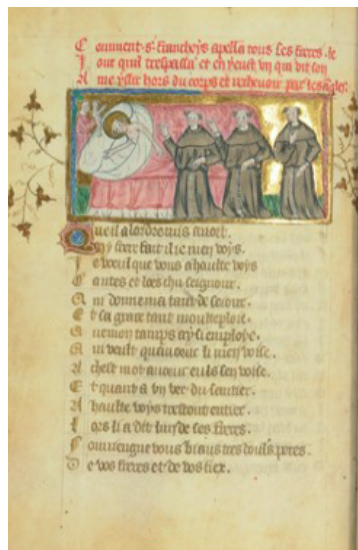 Comment s francheys apella tous ses freres le
iour quil trespassa et en y eust vn qui vit son
Ame yssir hors du corps et recheuoir par les angles
Que il a lordre mis auort
fait il ie men voys
Ie voeul que vous a haulte voys
Cantes et loes chu seignour
Qui donne ma tant de
Et sa grace tant moutteploie
Que mon tamps ay si employe
Qui veult quauoec li men voise
A chest mot auoeuc euls sen voise
Et quant a vn ver du sautier
A haulte voys trestout entier
Lors li a dit lun de ses freres
vous tres douls peres
De vos freres et de vos fiex